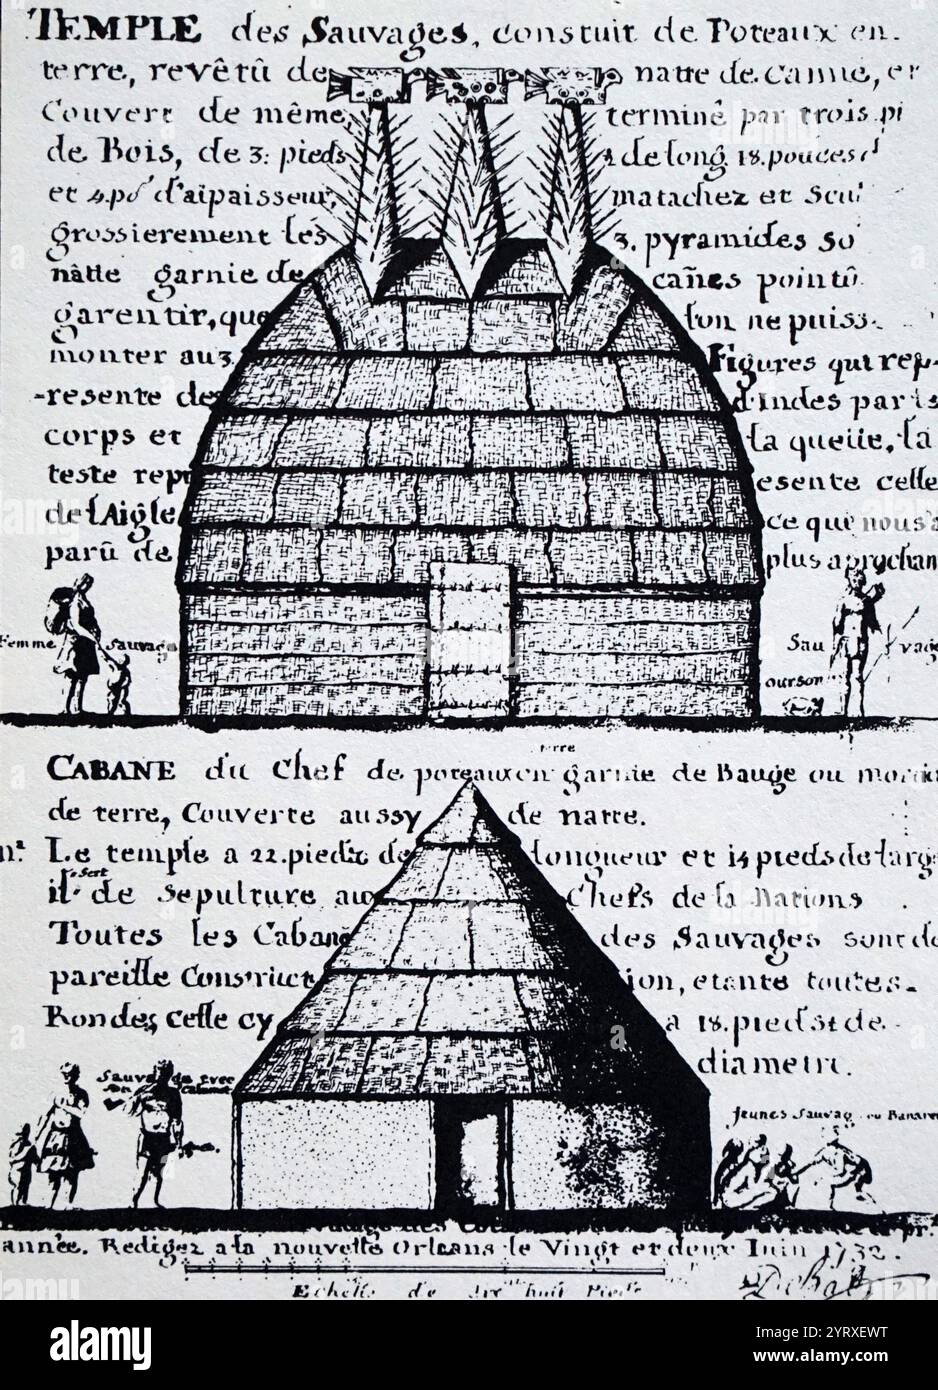 TEMPLE des Sauvages, constuit de Poteaux en
terre, revêtû de natte de Canne, et
Couvert de même, terminé par trois pi
de Bois, de 3. pieds ½ de long 18. pouces d
et 4. pd d'aïpaisseur, matachez et Scul
grossierement les 3. pyramides so
nâtte garnie de cañes pointû
garentir, que lon ne puiss
monter aux 3. Figures qui rep-
-resente des d'Indes par le
corps et la queüe, la
teste repr esente celle
de l'Aigle ce que nous a
parû de plus aprochan
Femme Sauvage
Sau vage
ourson
terre
CABANE du Chef de poteaux en garnie de Bauge ou mor
de terre, Couverte aussy de natte.
nª. Le temple a 22. pieds de longueur et 14 pieds de larg
il sert de Sepulture aux Chefs de la Nations
Toutes les Cabane des Sauvages sont de
pareille Construct ion, etante toutes
Rondes, celle cy a 18. pieds de
diametre.
Sauvage avec
un Calumet
Jeunes Sauvag
année. Redigez a la nouvelle Orleans le Vingt et deux Juin 1732.
Echelle de dix huit Pieds
DeBatz
alamy
www.alamy.com
Image ID: 2YRXEWT